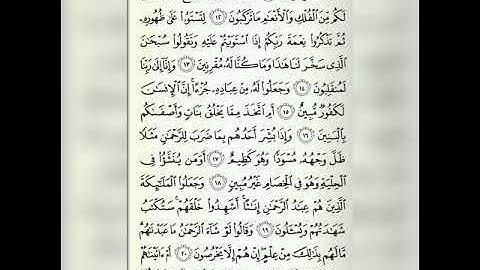 لَكُم مِّنَ ٱلْفُلْكِ وَٱلْأَنْعَٰمِ مَا تَرْكَبُونَ ١٢ لِتَسْتَوُۥا۟ عَلَىٰ ظُهُورِهِۦ
ثُمَّ تَذْكُرُوا۟ نِعْمَةَ رَبِّكُمْ إِذَا ٱسْتَوَيْتُمْ عَلَيْهِ وَتَقُولُوا۟ سُبْحَٰنَ
ٱلَّذِى سَخَّرَ لَنَا هَٰذَا وَمَا كُنَّا لَهُۥ مُقْرِنِينَ ١٣ وَإِنَّآ إِلَىٰ رَبِّنَا
لَمُنقَلِبُونَ ١٤ وَجَعَلُوا۟ لَهُۥ مِنْ عِبَادِهِۦ جُزْءًا ۚ إِنَّ ٱلْإِنسَٰنَ
لَكَفُورٌ مُّبِينٌ ١٥ أَمِ ٱتَّخَذَ مِمَّا يَخْلُقُ بَنَاتٍ وَأَصْفَىٰكُم
بِٱلْبَنِينَ ١٦ وَإِذَا بُشِّرَ أَحَدُهُم بِمَا ضَرَبَ لِلرَّحْمَٰنِ مَثَلًا
ظَلَّ وَجْهُهُۥ مُسْوَدًّا وَهُوَ كَظِيمٌ ١٧ أَوَمَن يُنَشَّؤُا۟ فِى
ٱلْحِلْيَةِ وَهُوَ فِى ٱلْخِصَامِ غَيْرُ مُبِينٍ ١٨ وَجَعَلُوا۟ ٱلْمَلَٰٓئِكَةَ
ٱلَّذِينَ هُمْ عِبَٰدُ ٱلرَّحْمَٰنِ إِنَٰثًا ۚ أَشَهِدُوا۟ خَلْقَهُمْ ۚ سَتُكْتَبُ
شَهَٰدَتُهُمْ وَيُسْـَٔلُونَ ١٩ وَقَالُوا۟ لَوْ شَآءَ ٱلرَّحْمَٰنُ مَا عَبَدْنَٰهُم ۗ
مَّا لَهُم بِذَٰلِكَ مِنْ عِلْمٍ ۖ إِنْ هُمْ إِلَّا يَخْرُصُونَ ٢٠ أَمْ ءَاتَيْنَٰهُمْ